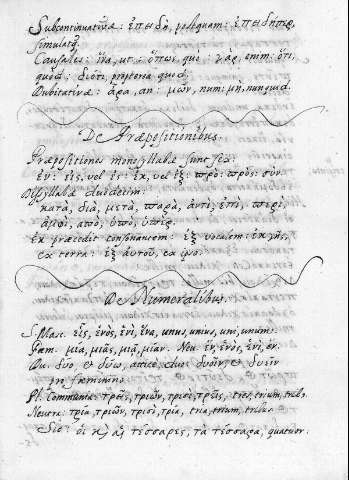 Subcontinuativæ: ἐπειδὴ, postquam: ἐπειδήπερ,
simulatq;
Causales: ἵνα, ut: ὅπως, qui: γὰρ, enim: ὅτι,
quod: διότι, propterea quod.
Dubitativæ: ἆρα, an: μῶν, num: μὴ, nunquid.
De Præpositionibus.
Præpositiones monosyllabæ sunt sex.
ἐν: εἰς, vel ἐς: ἐκ, vel ἐξ: πρὸ: πρὸς: σύν.
Dissyllabæ duodecim:
κατὰ, διὰ, μετὰ, παρὰ, ἀντὶ, ἐπὶ, περὶ,
ἀμφὶ, ἀπὸ, ὑπὸ, ὑπὲρ.
ἐκ præcedit consonantem: ἐξ vocalem: ἐκ γῆς,
ex terra: ἐξ αὐτοῦ, ex ipso.
De Numeralibus.
S. Masc. εἷς, ἑνὸς, ἑνὶ, ἕνα, unus, unius, uni, unum.
Fæm. μία, μιᾶς, μιᾷ, μίαν. Neu. ἓν, ἑνὸς, ἑνὶ, ἓν.
Du. δύο, & δύω, atticè, duo: δυοῖν, & δυεῖν
in fæminino.
Pl. Communia: τρεῖς, τριῶν, τρισὶ, τρεῖς, tres, trium, trib.
Neutra: τρία, τριῶν, τρισὶ, τρία, tria, trium, tribus.
Sic: οἱ κỳ αἱ τέσσαρες, τὰ τέσσαρα, quatuor.